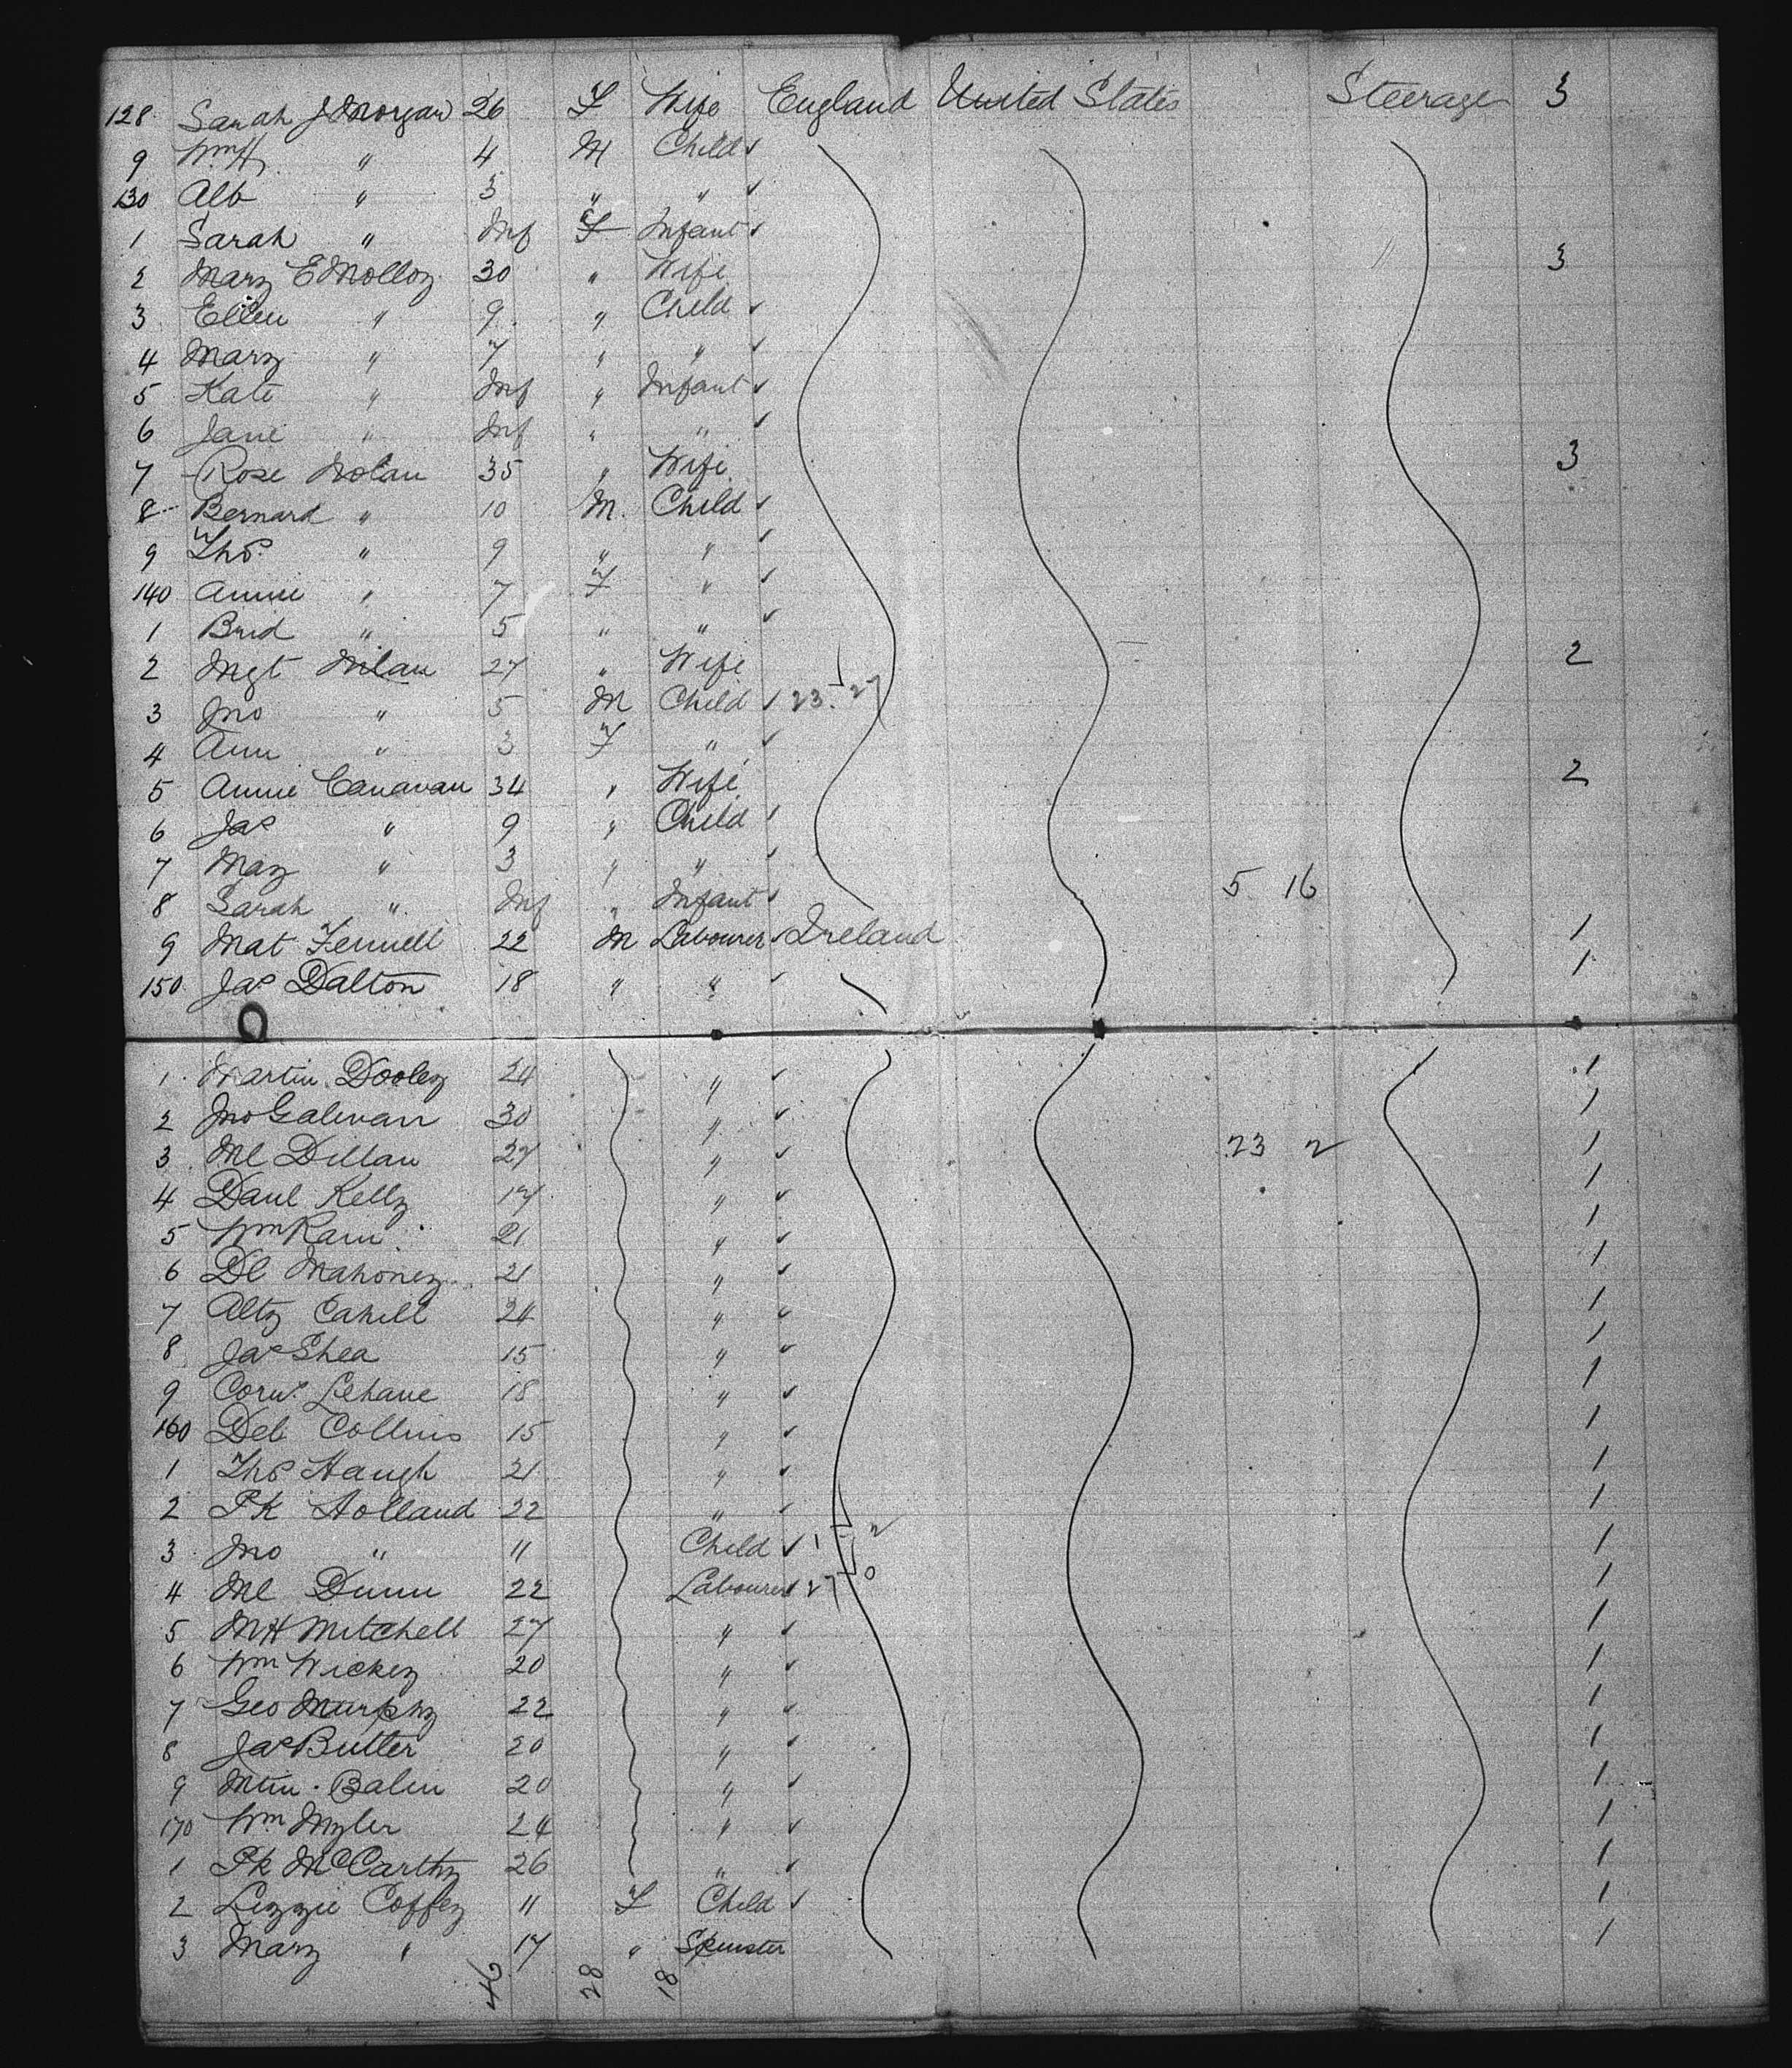 128 Sarah J Morgan 26 F Wife England United States Steerage 3
9 Wm H " 4 M Child ✓
130 Alb " 3 " " ✓
1 Sarah " Inf F Infant ✓
2 Mary E Molloy 30 " Wife 3
3 Ellen " 9 " Child ✓
4 Mary " 7 " " ✓
5 Kate " Inf " Infant ✓
6 Jane " Inf " " ✓
7 Rose Nolan 35 " Wife 3
8 Bernard " 10 M. Child ✓
9 Thos " 9 " " ✓
140 Annie " 7 F " ✓
1 Brid " 5 " " ✓
2 Mgt 27 " Wife 2
3 Jno " 5 M Child ✓ 23. 27
4 Ann " 3 F " ✓
5 Annie Canavan 34 " Wife 2
6 Jas " 9 " Child ✓
7 May " 3 " " ✓
5 16
8 Sarah " Inf " Infant ✓
9 Mat Fennell 22 M Labourer ✓ Ireland 1
150 Jas Dalton 18 " " ✓ 1
1 Martin Dooley 24 " ✓ 1
2 Jno Galivan 30 " ✓ 1
3 Ml Dillan 27 " ✓ 23 2 1
4 Danl Kelly 17 " ✓ 1
5 Wm 21 " ✓ 1
6 Dl Mahoney 21 " ✓ 1
7 Alty Cahill 24 " ✓ 1
8 Jas Shea 15 " ✓ 1
9 Corns Lehane 18 " ✓ 1
160 Deb Collins 15 " ✓ 1
1 Thos Haugh 21 " ✓ 1
2 Pk Holland 22 " ✓ 1
3 Jno " 11 Child ✓ 1
4 Ml Dunn 22 Labourer 1
5 MH Mitchell 27 " ✓ 1
6 Wm Hickey 20 " ✓ 1
7 Geo Murphy 22 " ✓ 1
8 Jas Butler 20 " ✓ 1
9 Mtin. Balin 20 " ✓ 1
170 Wm Myler 24 " ✓ 1
1 Pk McCarthy 26 " ✓ 1
2 Lizzie Coffey 11 F Child ✓ 1
3 Mary " 17 " Spinster 1
46 28 18